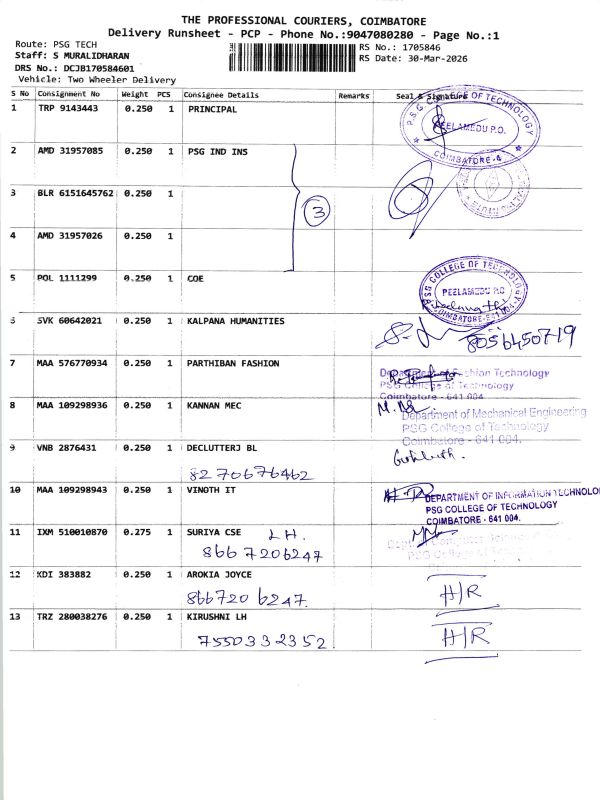 THE PROFESSIONAL COURIERS, COIMBATORE
Delivery Runsheet - PCP - Phone No.:9047080280 - Page No.:1
Route: PSG TECH
Staff: S MURALIDHARAN
DRS No.: DCJB170584601
Vehicle: Two Wheeler Delivery
RS No.: 1705846
RS Date: 30-Mar-2026
S No Consignment No Weight PCS Consignee Details Remarks Seal & Signature
1 TRP 9143443 0.250 1 PRINCIPAL
P.S.G. COLLEGE OF TECHNOLOGY
PEELAMEDU P.O.
COIMBATORE-4
2 AMD 31957085 0.250 1 PSG IND INS
3 BLR 6151645762 0.250 1
3
4 AMD 31957026 0.250 1
5 POL 1111299 0.250 1 COE
PSG COLLEGE OF TECHNOLOGY
PEELAMEDU P.O
COIMBATORE-641 004
6 SVK 60642021 0.250 1 KALPANA HUMANITIES
8056450719
7 MAA 576770934 0.250 1 PARTHIBAN FASHION
Department of Fashion Technology
PSG College of Technology
Coimbatore - 641 004
8 MAA 109298936 0.250 1 KANNAN MEC
Department of Mechanical Engineering
PSG College of Technology
Coimbatore - 641 004.
9 VNB 2876431 0.250 1 DECLUTTERJ BL
8270676462
10 MAA 109298943 0.250 1 VINOTH IT
DEPARTMENT OF INFORMATION TECHNOLO
PSG COLLEGE OF TECHNOLOGY
COIMBATORE - 641 004.
11 IXM 510010870 0.275 1 SURIYA CSE LH.
8667206247
12 KDI 383882 0.250 1 AROKIA JOYCE
8667206247.
H/R
13 TRZ 280038276 0.250 1 KIRUSHNI LH
7550332352
H/R